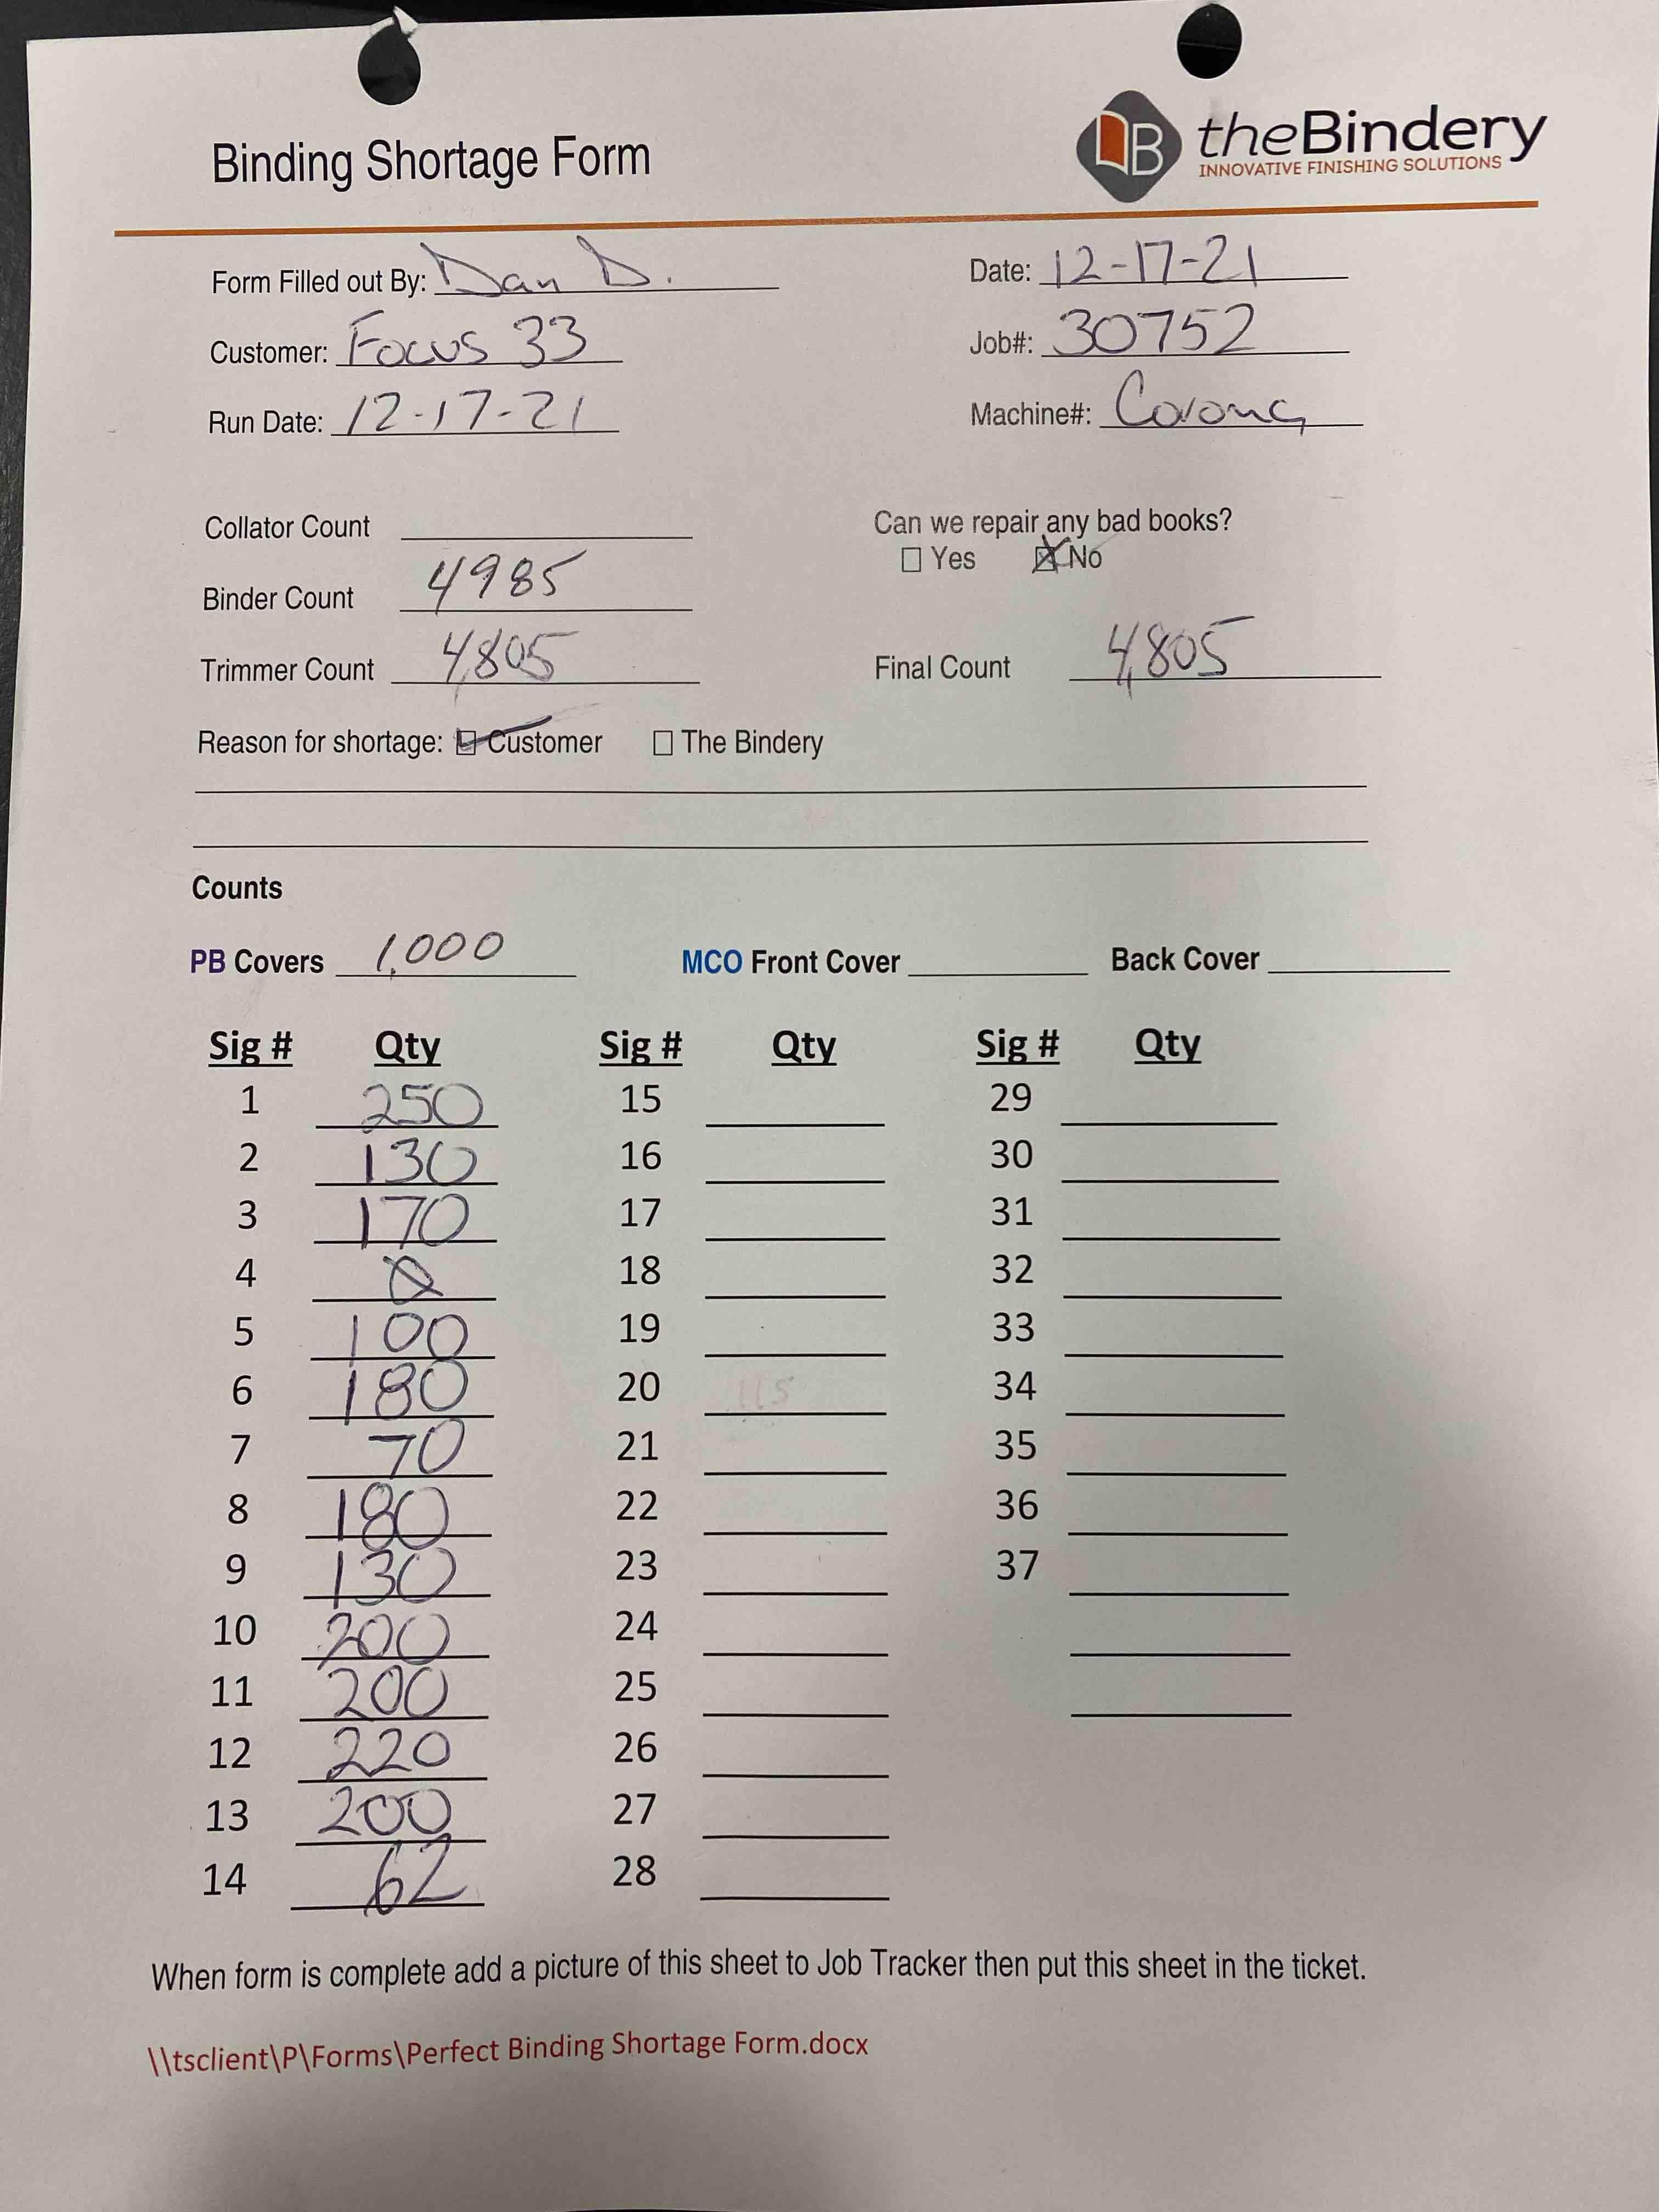 Binding Shortage Form
B theBindery
INNOVATIVE FINISHING SOLUTIONS
Form Filled out By: Dan D. Date: 12-17-21
Customer: Focus 33 Job#: 30752
Run Date: 12-17-21 Machine#: Corona
Collator Count Can we repair any bad books?
Yes No
Binder Count 4985
Trimmer Count 4,805 Final Count 4,805
Reason for shortage: Customer The Bindery
Counts
PB Covers 1,000 MCO Front Cover Back Cover
Sig # Qty Sig # Qty Sig # Qty
1 250 15 29
2 130 16 30
3 170 17 31
4 0 18 32
5 100 19 33
6 180 20 115 34
7 70 21 35
8 180 22 36
9 130 23 37
10 200 24
11 200 25
12 220 26
13 200 27
14 62 28
When form is complete add a picture of this sheet to Job Tracker then put this sheet in the ticket.
\\tsclient\P\Forms\Perfect Binding Shortage Form.docx